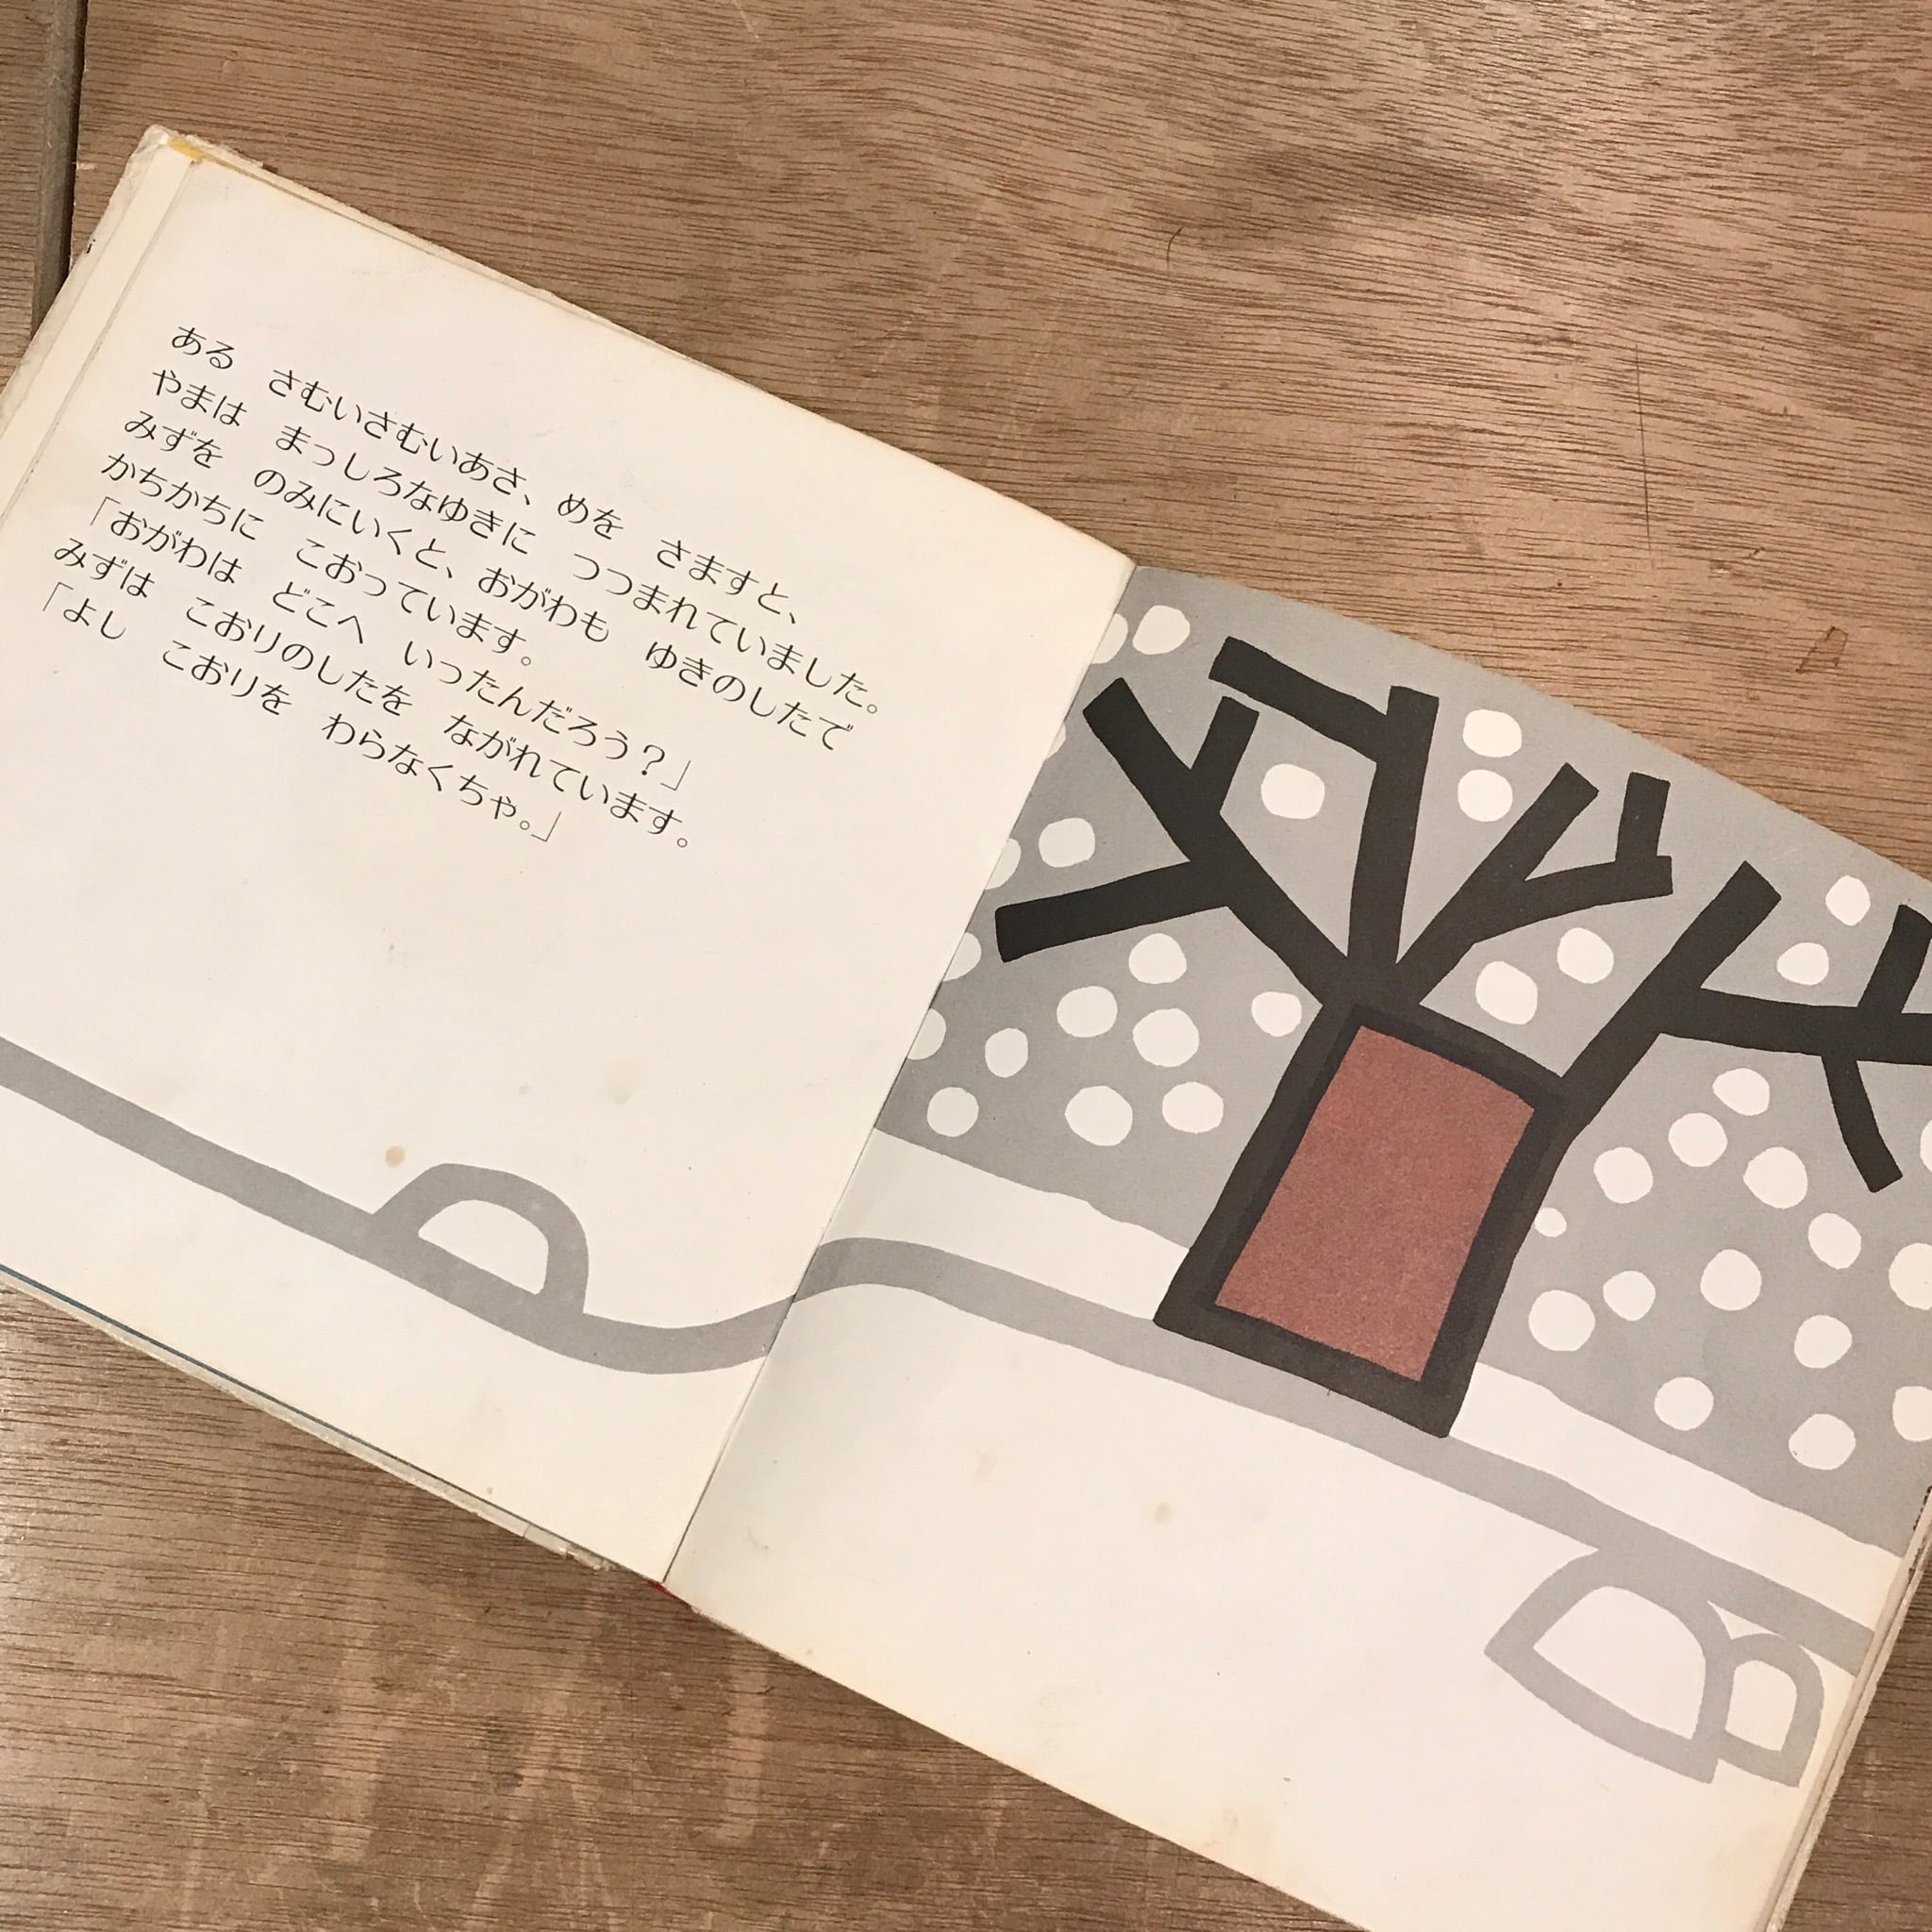 ある　さむいさむいあさ、めを　さますと、
やまは　まっしろなゆきに　つつまれていました。
みずを　のみにいくと、おがわも　ゆきのしたで
かちかちに　こおっています。
「おがわは　どこへ　いったんだろう？」
みずは　こおりのしたを　ながれています。
「よし　こおりを　わらなくちゃ。」